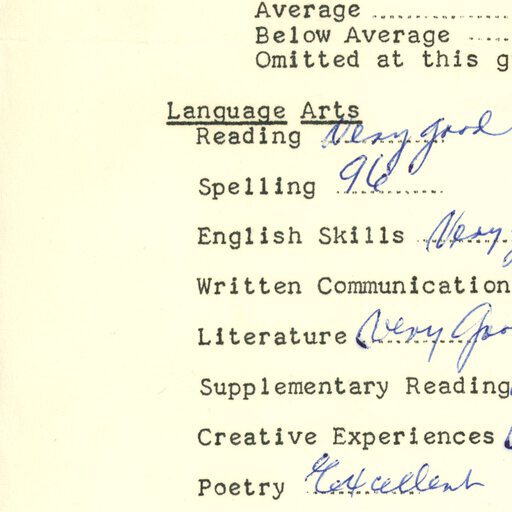 Average ..............
Below Average .....
Omitted at this g
Language Arts
Reading Very good
Spelling 96
English Skills Very
Written Communication
Literature Very Goo
Supplementary Reading
Creative Experiences
Poetry Excellent